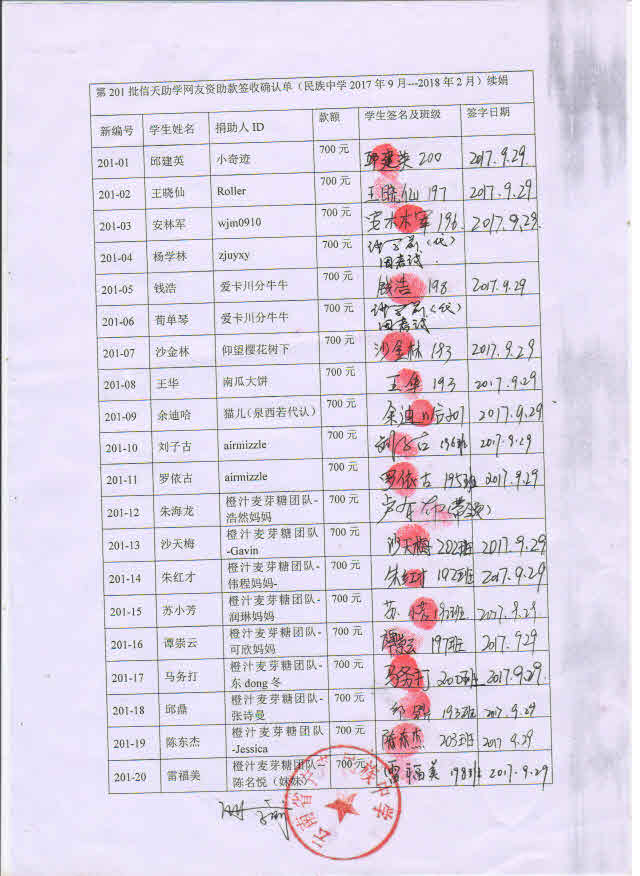 第201批信天助学网友资助款签收确认单（民族中学2017年9月---2018年2月）续娟
新编号 学生姓名 捐助人ID 款额 学生签名及班级 签字日期
201-01 邱建英 小奇迹 700元 邱建英 200 2017.9.29
201-02 王晓仙 Roller 700元 王晓仙 197 2017.9.29
201-03 安林军 wjm0910 700元 安林军 196 2017.9.29
201-04 杨学林 zjuyxy 700元 (代)
因考试
201-05 钱浩 爱卡川分牛牛 700元 钱浩 198 2017.9.29
201-06 荀单琴 爱卡川分牛牛 700元 (代)
因考试
201-07 沙金林 仰望樱花树下 700元 沙金林 193 2017.9.29
201-08 王华 南瓜大饼 700元 王华 193 2017.9.29
201-09 余迪哈 猫儿（泉西若代认） 700元 余迪 2017.9.29
201-10 刘子古 airmizzle 700元 刘子古 196班 2017.9.29
201-11 罗依古 airmizzle 700元 罗依古 195班 2017.9.29
201-12 朱海龙 橙汁麦芽糖团队- 700元
浩然妈妈
201-13 沙天梅 橙汁麦芽糖团队 700元 沙天梅 202班 2017.9.29
-Gavin
201-14 朱红才 橙汁麦芽糖团队- 700元 朱红才 192班 2017.9.29
伟程妈妈-
201-15 苏小芳 橙汁麦芽糖团队- 700元 苏 192班 2017.9.29
润琳妈妈
201-16 谭崇云 橙汁麦芽糖团队- 700元 谭崇云 197班 2017.9.29
可欣妈妈
201-17 马务打 橙汁麦芽糖团队- 700元 马务打 200班 2017.9.29.
东dong冬
201-18 邱鼎 橙汁麦芽糖团队- 700元 邱鼎 193班 2017.9.29
张诗曼
201-19 陈东杰 橙汁麦芽糖团队 700元 陈东杰 203班 2017.9.29
-Jessica
201-20 雷福美 橙汁麦芽糖团队- 700元 雷福美 198班 2017.9.29
陈名悦（妹妹）
云南省 族中学